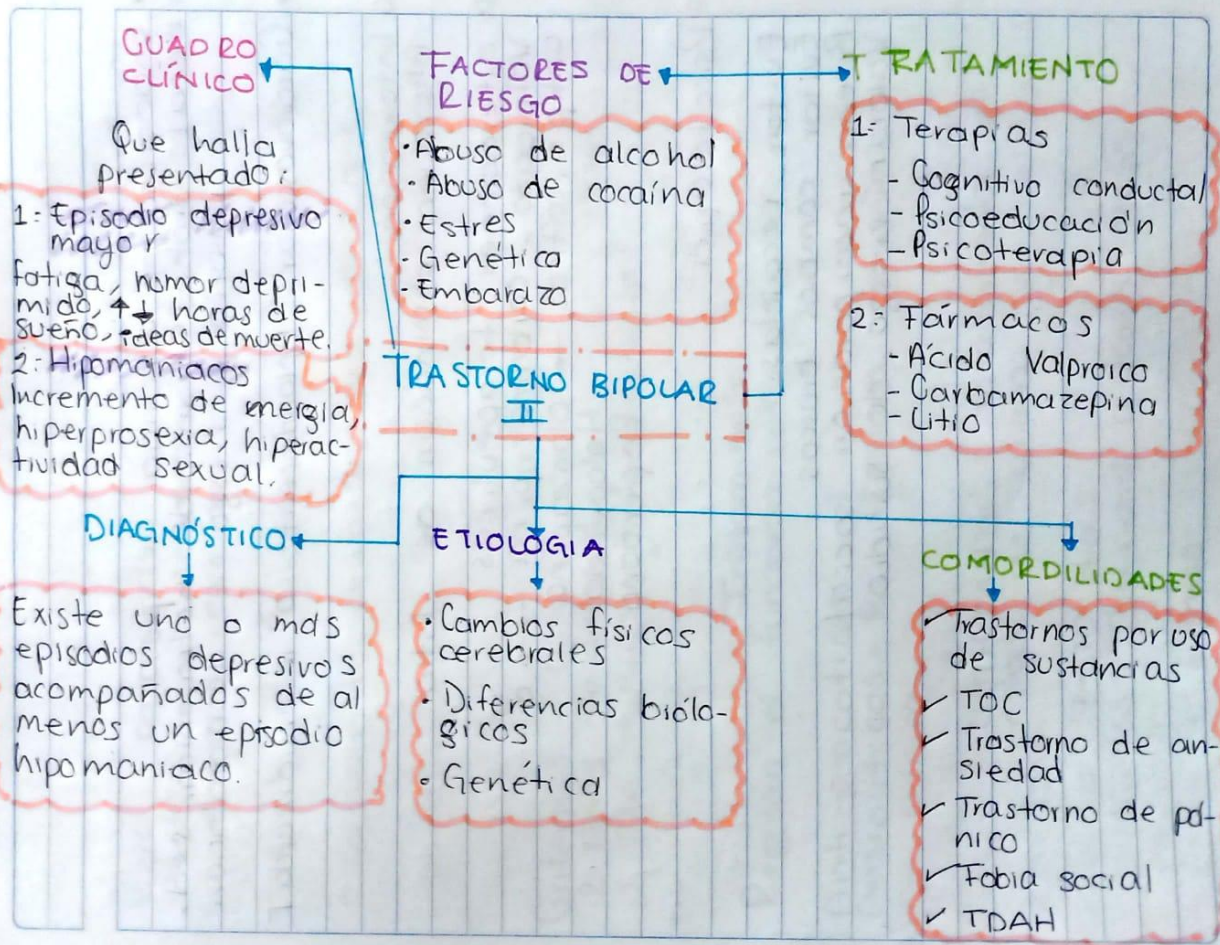 CUADRO
CLÍNICO
Que halla
presentado:
1: Episodio depresivo
mayor
fatiga, humor depri-
mido, ↑↓ horas de
sueño, ideas de muerte.
2: Hipomaniacos
Incremento de energia,
hiperprosexia, hiperac-
tividad sexual.
FACTORES DE
RIESGO
· Abuso de alcohol
· Abuso de cocaína
· Estres
· Genético
· Embarazo
TRATAMIENTO
1: Terapias
- Cognitivo conductal
- Psicoeducación
- Psicoterapia
2: Fármacos
- Ácido Valproico
- Carbamazepina
- Litio
TRASTORNO BIPOLAR
II
DIAGNÓSTICO
Existe uno o mas
episodios depresivos
acompañados de al
menos un episodio
hipomaniaco.
ETIOLOGIA
· Cambios físicos
cerebrales
· Diferencias bioló-
gicos
· Genética
COMORDILIDADES
✓ Trastornos por uso
de sustancias
✓ TOC
✓ Trastorno de an-
siedad
✓ Trastorno de pá-
nico
✓ Fobia social
✓ TDAH